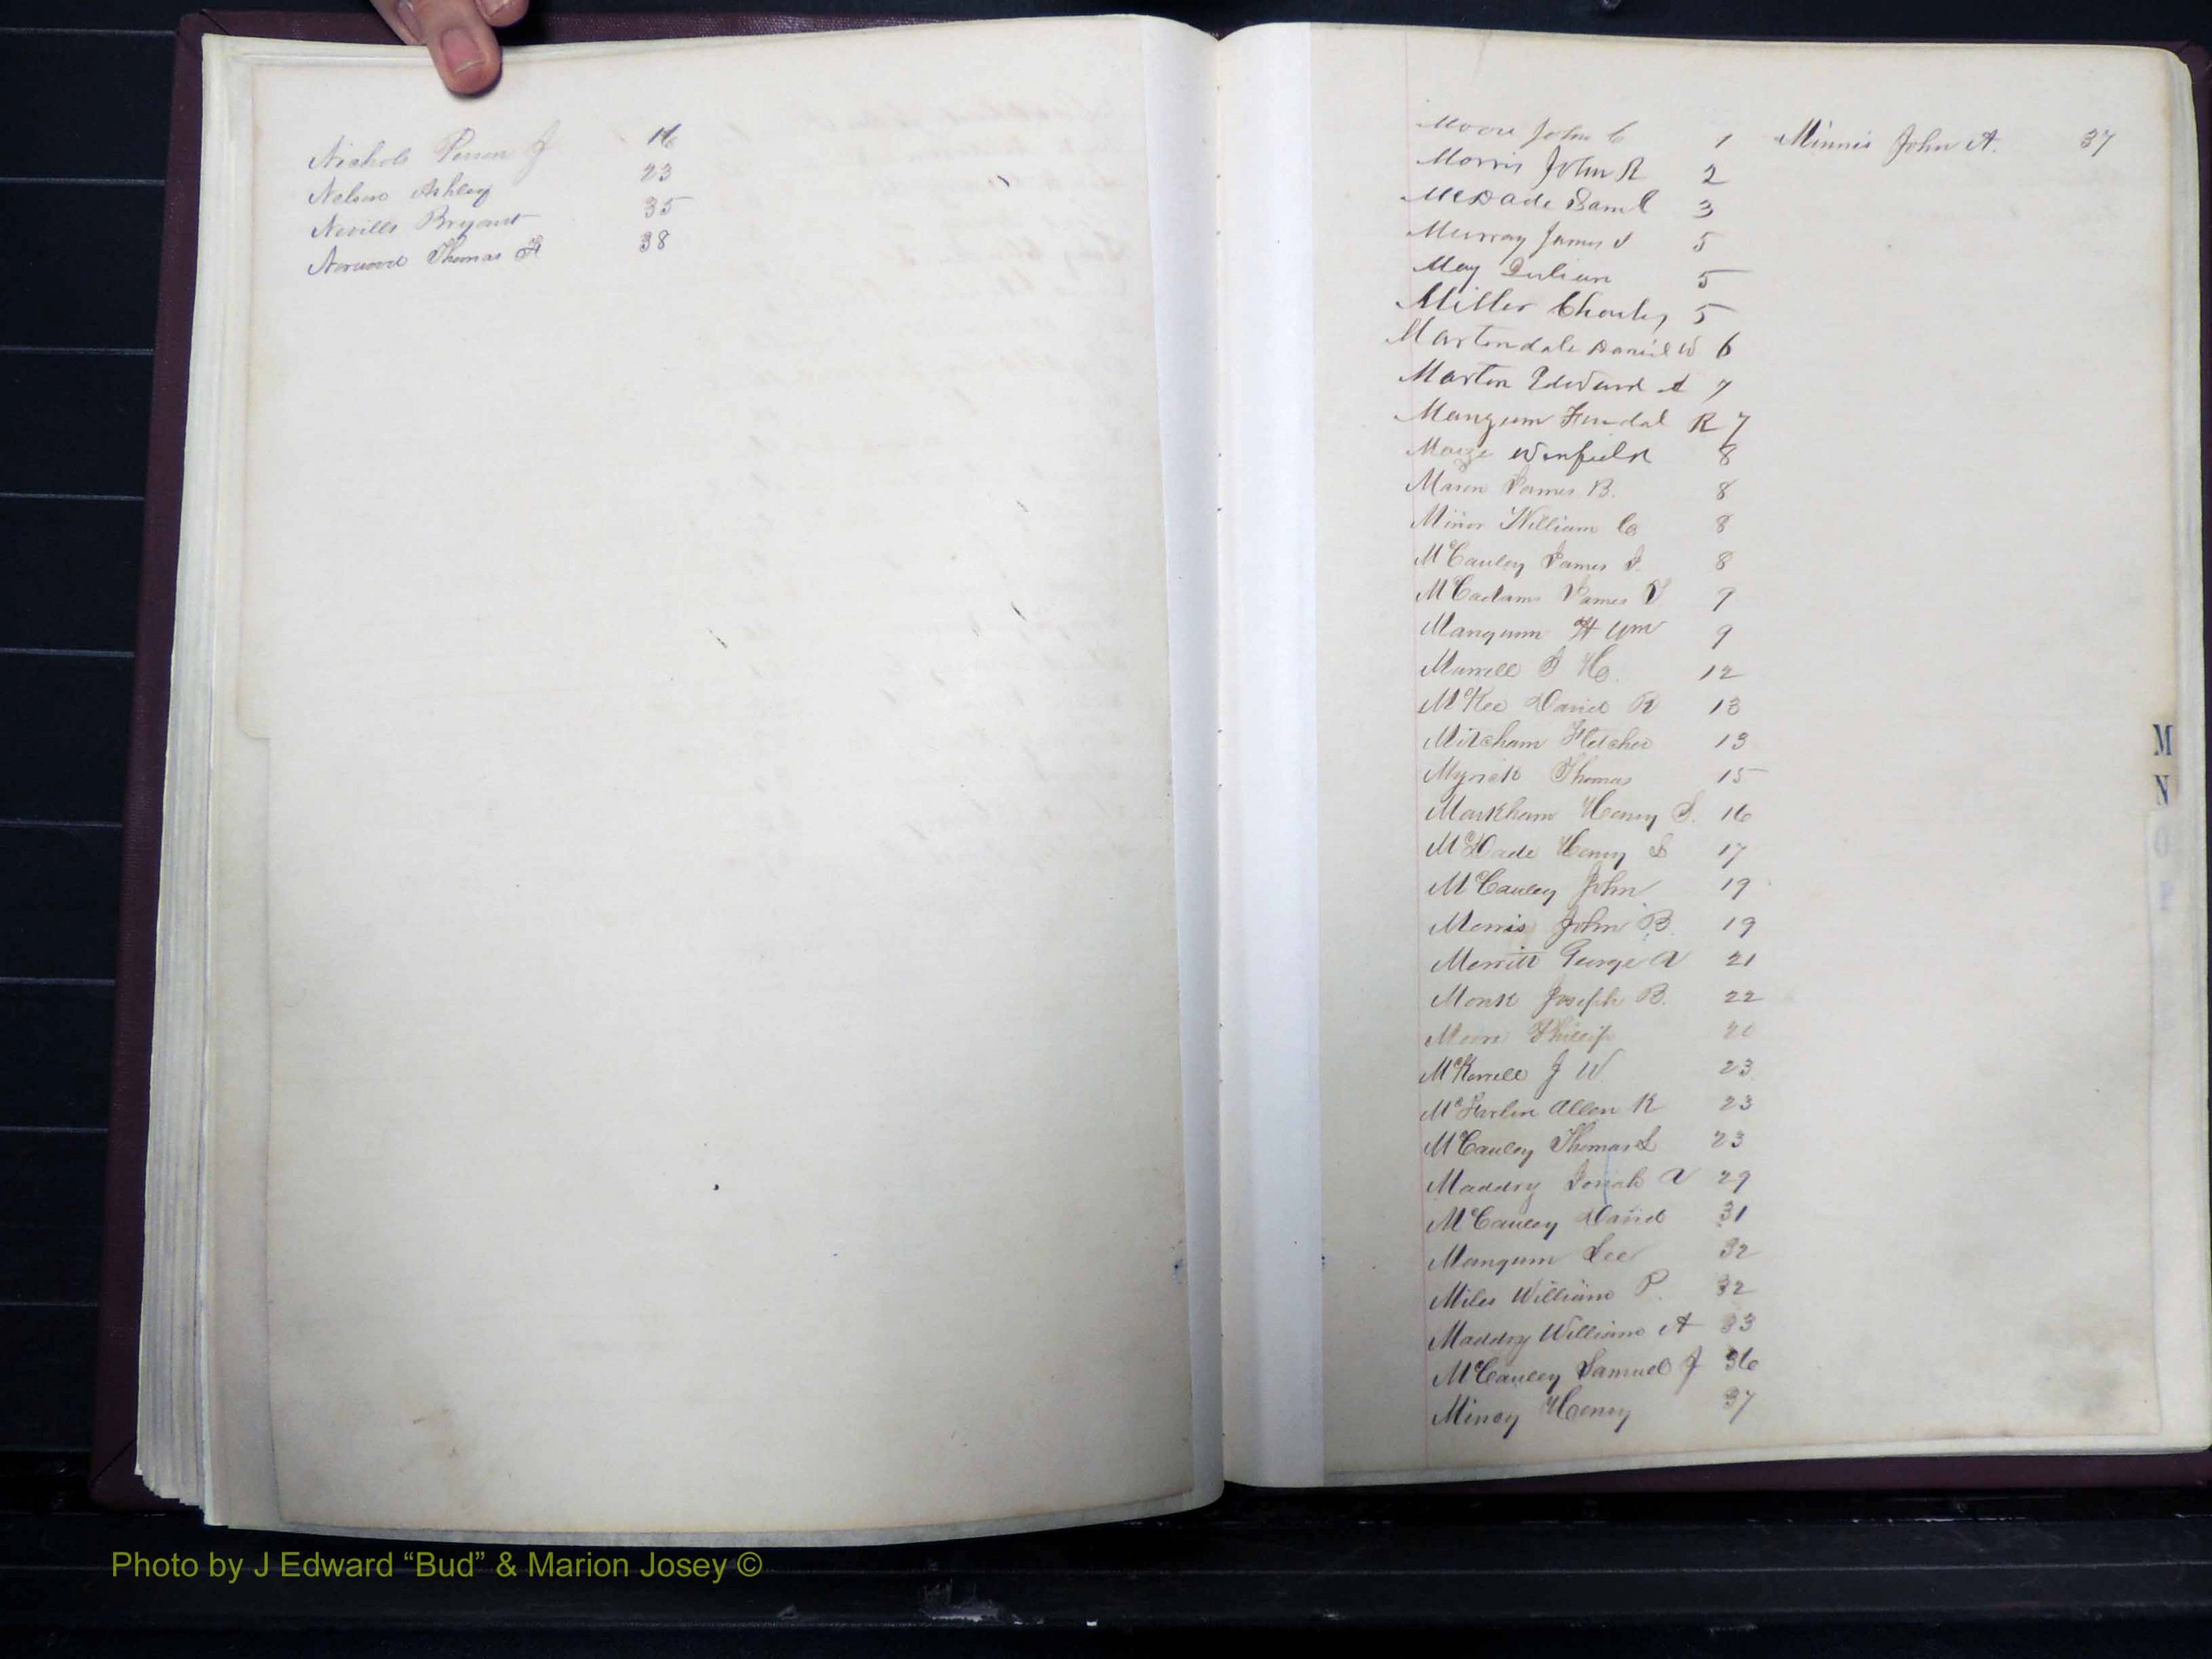 Nichols Person J 16
Nelson Ashley 23
Nevills Bryant 35
Norwood Thomas F 38
Moore John C 1
Minnis John A. 37
Morris John R 2
McDade Saml 3
Murray James 5
May Julian 5
Miller Charley 5
Martondale Daniel W 6
Marton Edward A 7
Mangum R 7
Maize Winfield 8
Mason James B. 8
Minor William C 8
McCauley James S. 8
McCadams James 9
Mangum H Wm 9
Murrell H. 12
McKee David R 13
Mitcham Fletcher 13
Myrick Thomas 15
Markham Henry S. 16
McDade Henry S 17
McCauley John 19
Morris John B. 19
Merritt George W 21
Monk Joseph B. 22
Moore Phillip 20
McKerrell J W. 23
McFarlin Allen R 23
McCauley Thomas L 23
Maddry Josiah W 29
McCauley David 31
Mangum Lee 32
Miles William P. 32
Maddry William A 33
McCauley Samuel J 36
Mincy Henry 37
M
N
O
P
Photo by J Edward “Bud” & Marion Josey ©